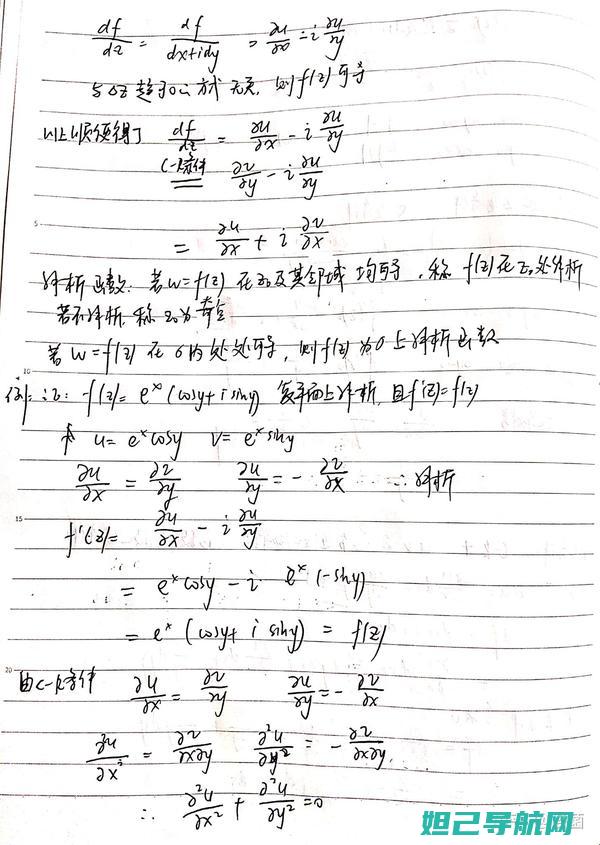 df/dz = df/(dx+idy) = ∂u/∂x - i ∂u/∂y
与Δz趋于0的方式无关, 则f(z)可导
以上顺便得了 df/dz = ∂u/∂x - i ∂u/∂y
C-R条件 ∂v/∂y - i ∂u/∂y
= ∂u/∂x + i ∂v/∂x
解析函数: 若w=f(z) 在z₀及其邻域均可导, 称 f(z)在z₀处解析
若不解析, 称z₀为奇点
若 w=f(z) 在σ内处处可导, 则f(z)为σ上解析函数
例: 证: f(z)= eˣ(cosy+isiny) 复平面上解析, 且f'(z)=f(z)
u= eˣcosy v= eˣsiny
∂u/∂x = ∂v/∂y ∂u/∂y = - ∂v/∂x ∴解析
f'(z)= ∂u/∂x - i ∂u/∂y
= eˣcosy - i eˣ(-siny)
= eˣ(cosy+ i siny) = f(z)
由C-R条件 ∂u/∂x = ∂v/∂y ∂u/∂y = - ∂v/∂x
∂²u/∂x² = ∂v/∂x∂y ∂²u/∂y² = - ∂v/∂x∂y
∴ ∂²u/∂x² + ∂²u/∂y² =0
妲己导航网